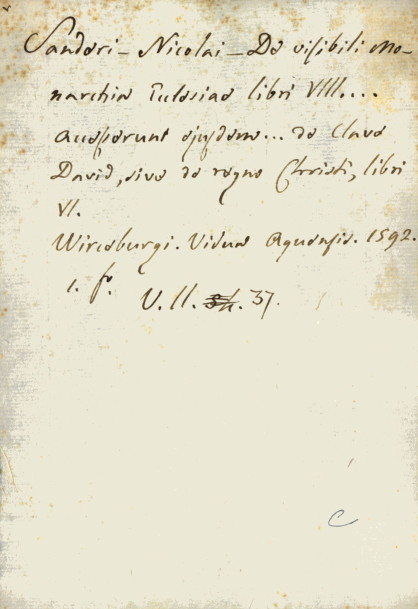 Sanderi - Nicolai - De visibili Mo-
narchia Eclesiae libri VIII....
Acesserunt ejusdem... de Clave
David, sive de regno Christi, libri
VI.
Wirceburgi. Viduae Aquensis. 1592.
1. fo.
V. 11. 37.
C